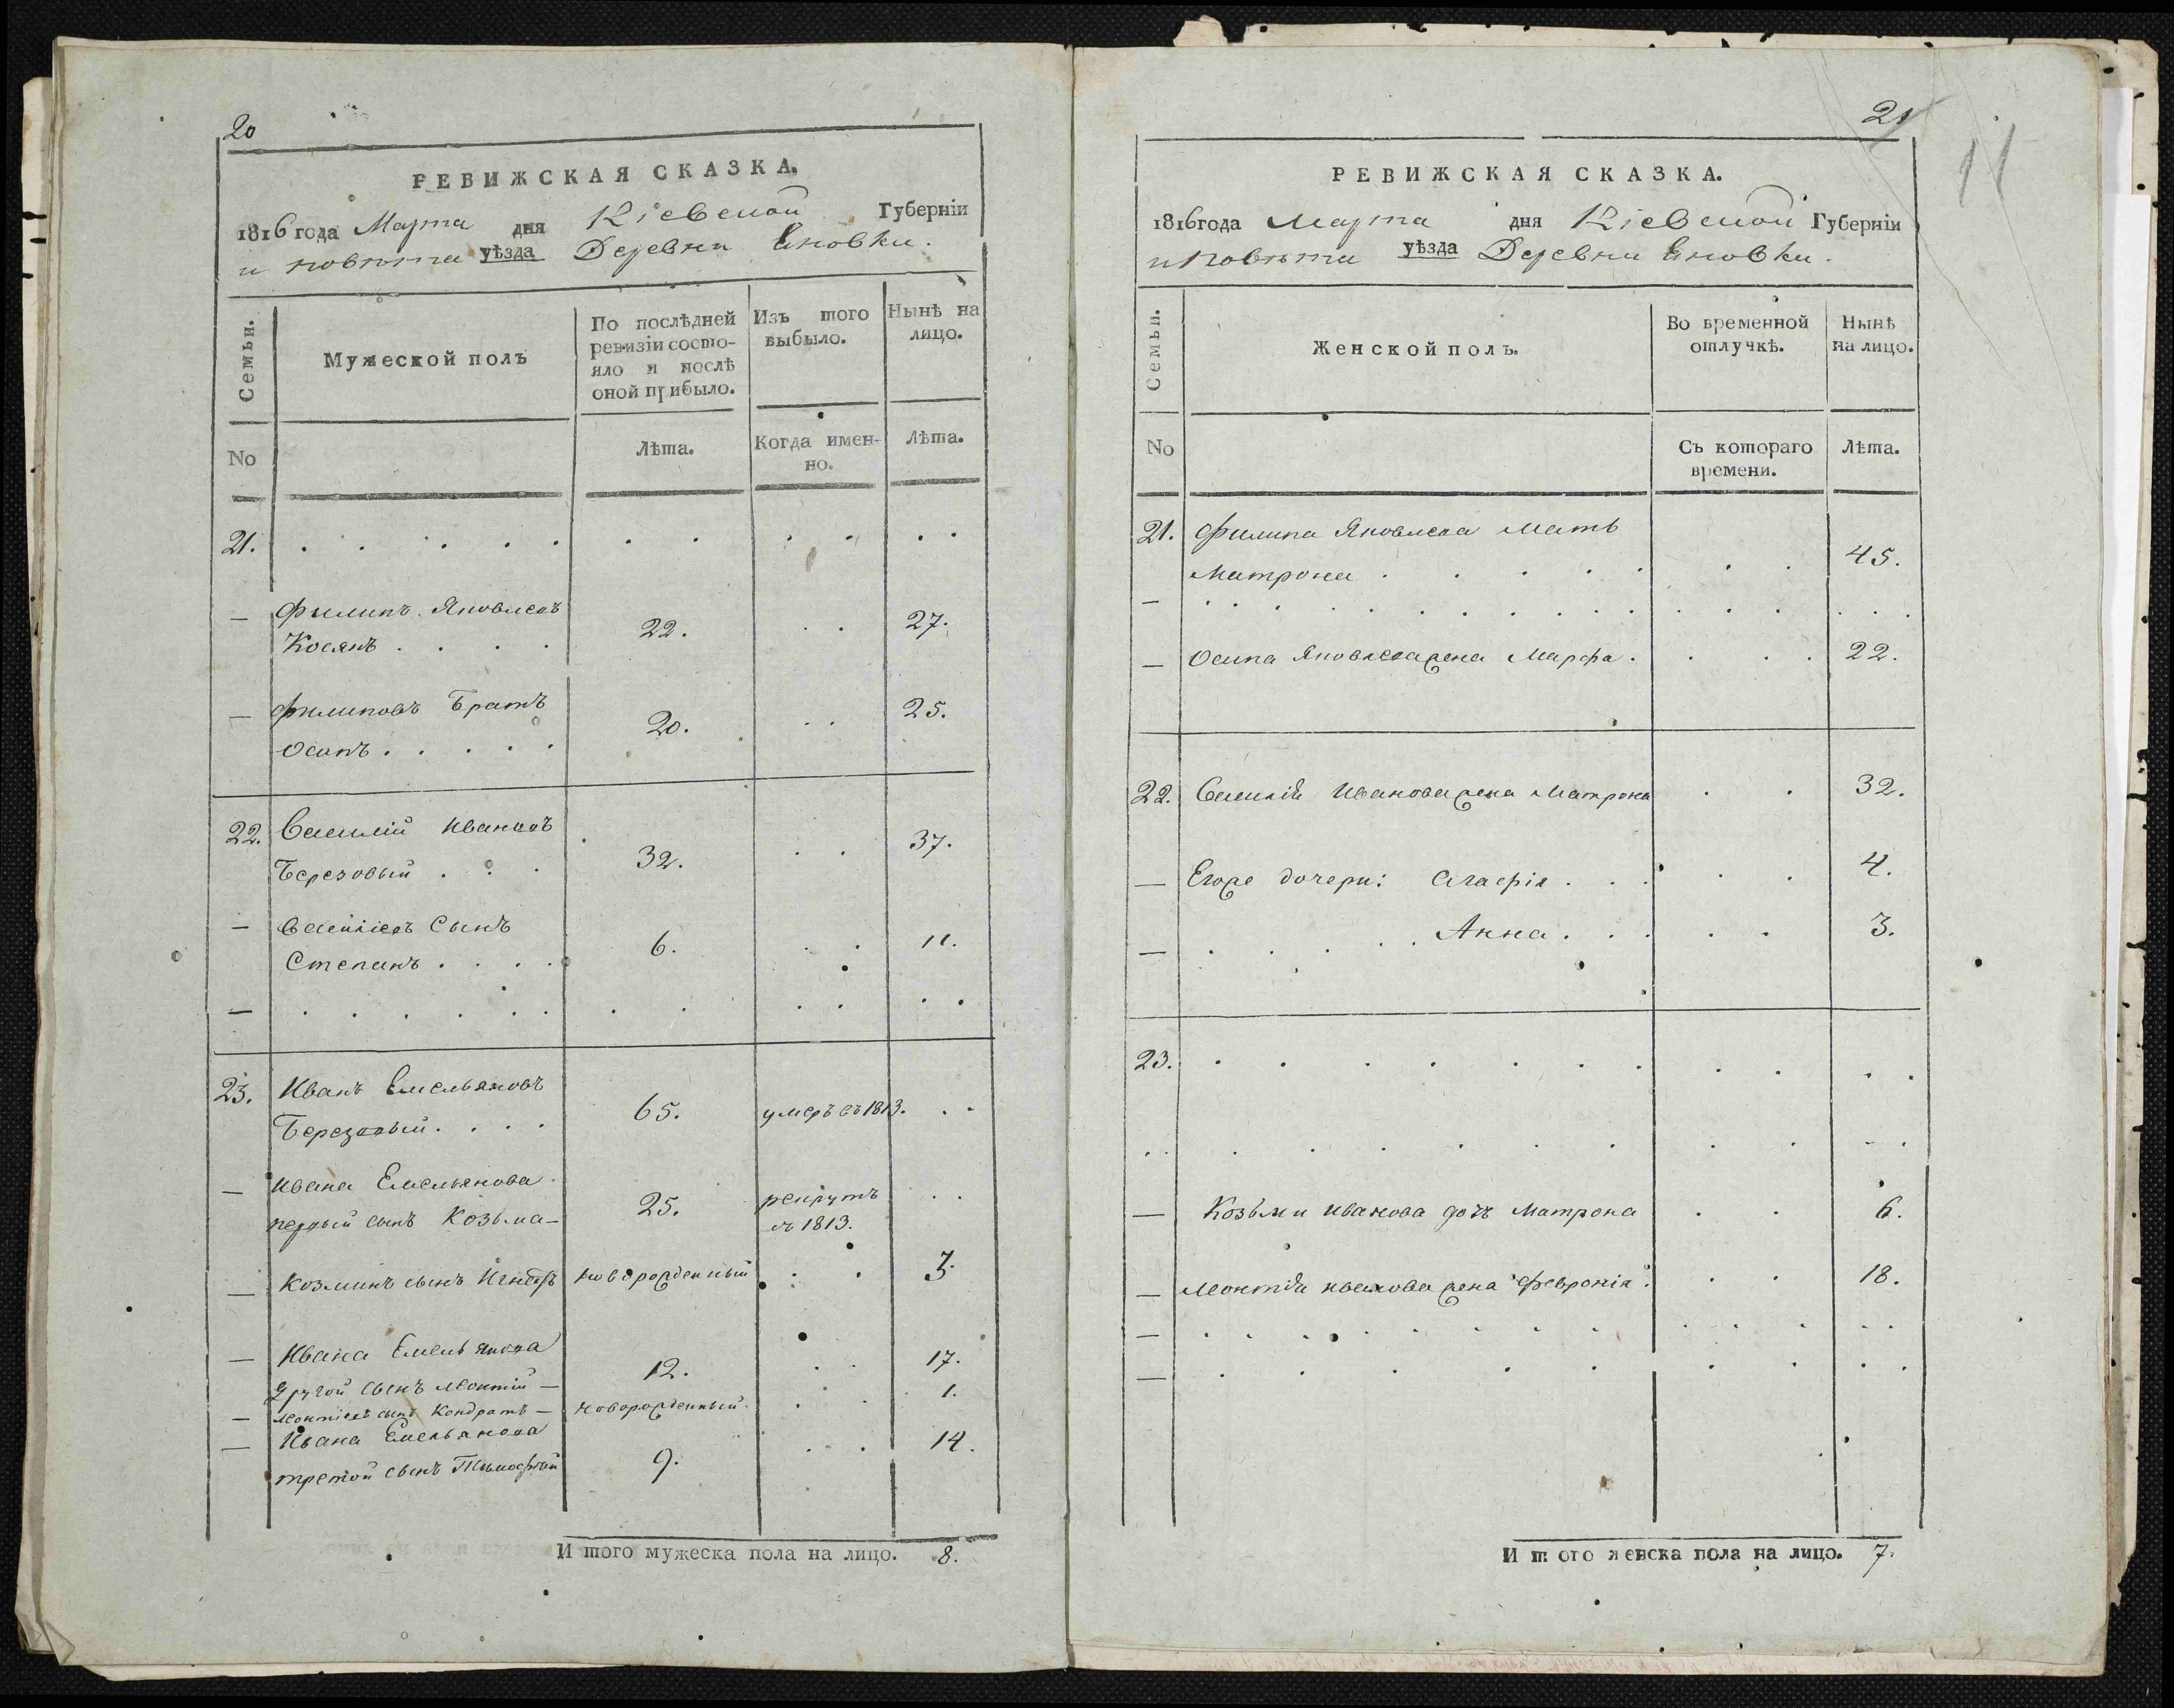 20
РЕВИЖСКАЯ СКАЗКА.
1816 года Марта дня Кіевской Губерніи
и повѣта уѣзда Деревни Еновки.
Семьи.
Мужеской полъ
По послѣдней
ревизіи состо-
яло и послѣ
оной прибыло.
Изъ того
выбыло.
Нынѣ на
лицо.
No
Лѣта.
Когда имен-
но.
Лѣта.
21. . . . . . . . . . . . .
— Филипъ Яковлевъ
Косянъ . . . . 22. . . 27.
— Филиповъ Братъ
Осипъ . . . . . 20. . . 25.
22. Василій Ивановъ
Березовый . . . 32. . . 37.
— Василіевъ Сынъ
Степанъ . . . . 6. . . 11.
— . . . . . . . . . . . .
23. Иванъ Емельяновъ
Березовый . . . . 65. умеръ въ 1813. . .
— Ивана Емельянова
первый сынъ Козьма — 25. рекрутъ
въ 1813. . .
— Козминъ сынъ новорожденный . . 3.
— Ивана Емельянова
Другой сынъ Монтій — 12. . . 17.
— Монтіевъ сынъ Кондратъ — новорожденный . . 1.
— Ивана Емельянова
третой сынъ Тимофей 9. . . . 14.
И того мужеска пола на лицо. 8.
21
11
РЕВИЖСКАЯ СКАЗКА.
1816 года Марта дня Кіевской Губерніи
и Повѣта уѣзда Деревни Еновки.
Семьи.
Женской полъ.
Во временной
отлучкѣ.
Нынѣ
на лицо.
No
Съ котораго
времени.
Лѣта.
21. Филипа Яковлева Мать
Матрона . . . . . . . 45.
— . . . . . . . . . . . . . .
— Осипа Яковлева жена Марфа . . . . 22.
22. Василія Иванова жена Матрона . . 32.
— Егоже дочери: Агафія . . . . . 4.
— . . . . . Анна . . . . . 3.
23. . . . . . . . . . . .
. . . . . . . . . . . .
— Козьми Иванова дочь Матрона . . 6.
— Монтія Иванова жена Февронія . . . 18.
— . . . . . . . . . . . . .
— . . . . . . . . .
И того женска пола на лицо. 7.